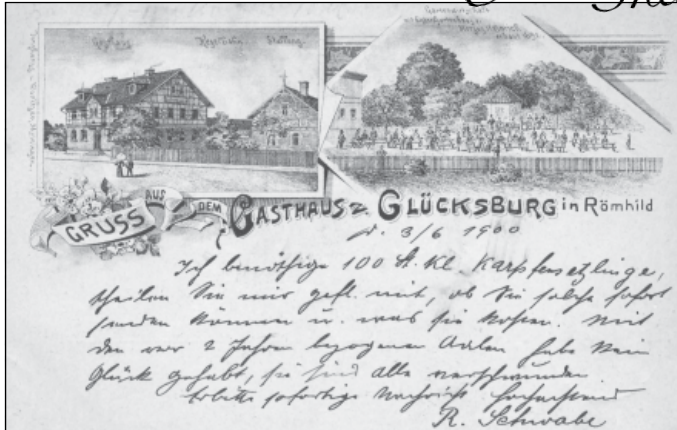 GRUSS AUS DEM GASTHAUS z. GLÜCKSBURG in Römhild
d. 3/6 1900
Ich benöthige 100 St. kl. Karpfensetzlinge,
theilen Sie mir gefl. mit, ob Sie solche sofort
senden können u. was sie kosten. Mit
den vor 2 Jahren bezogenen Aalen habe kein
Glück gehabt, sie sind alle verschwunden
Erbitte sofortige Nachricht hochachtend
R. Schwabe